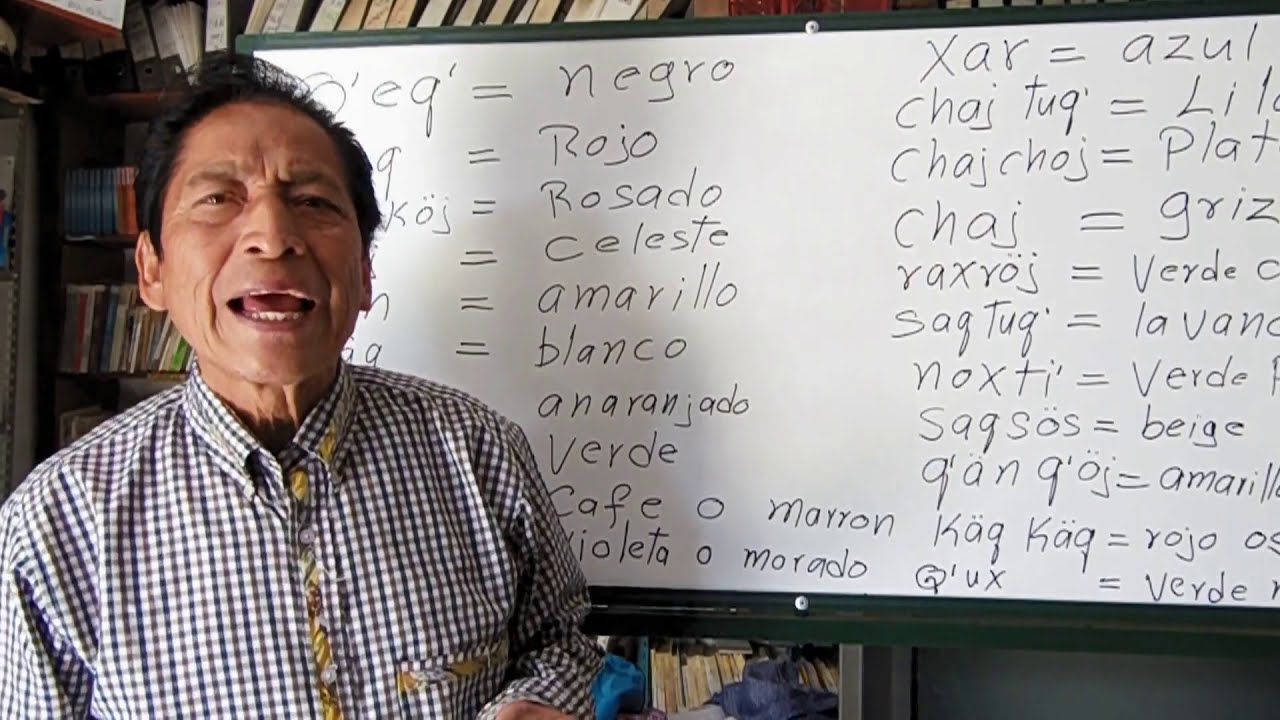 Q'eq' = negro
= Rojo
köj = Rosado
= celeste
= amarillo
= blanco
anaranjado
Verde
Cafe o marron
violeta o morado
xar = azul
chaj tuq' =
chajchoj =
chaj = griz
raxröj = Verde
saqtuq' =
noxti' = Verde
saqsös = beige
q'än q'öj =
Käq Käq = rojo
Q'ux = Verde